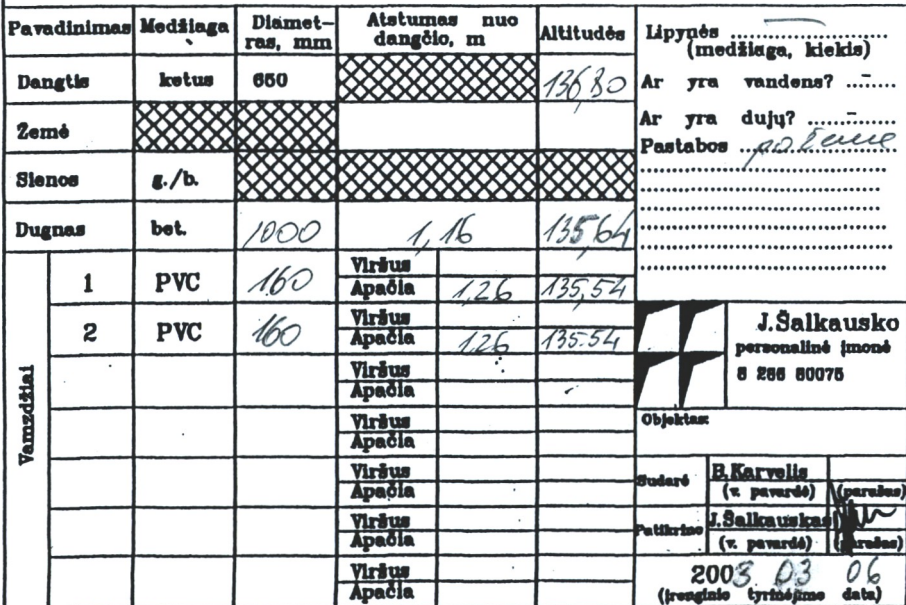 Pavadinimas Medžiaga Diamet-ras, mm Atstumas nuo dangčio, m Altitudės
Dangtis ketus 650 136,80
Žemė
Sienos g./b.
Dugnas bet. 1000 1,16 135,64
Vamzdžiai
1 PVC 160 Viršus
Apačia 1,26 135,54
2 PVC 160 Viršus
Apačia 1,26 135.54
Viršus
Apačia
Viršus
Apačia
Viršus
Apačia
Viršus
Apačia
Viršus
Apačia
Lipynės
(medžiaga, kiekis)
Ar yra vandens? -
Ar yra dujų? -
Pastabos po žeme
J.Šalkausko
personalinė įmonė
8 266 60075
Objektas:
Sudarė B.Karvelis
(v. pavardė) (parašas)
Patikrino J.Šalkauskas
(v. pavardė) (parašas)
2003 03 06
(įrenginio tyrinėjimo data)